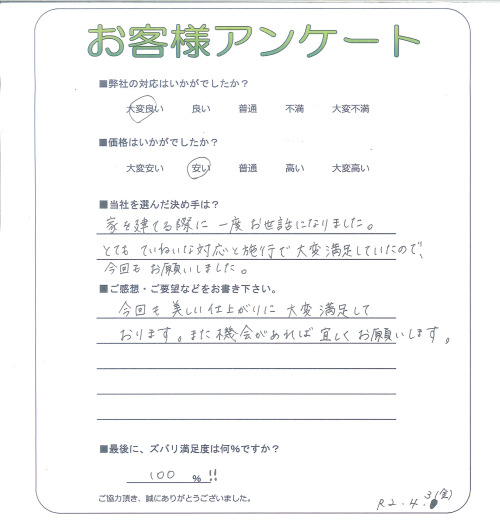 お客様アンケート
■弊社の対応はいかがでしたか?
大変良い 良い 普通 不満 大変不満
■価格はいかがでしたか?
大変安い 安い 普通 高い 大変高い
■当社を選んだ決め手は?
家を建てる際に一度お世話になりました。
とても ていねいな対応と施行で大変満足していたので、
今回もお願いしました。
■ご感想・ご要望などをお書き下さい。
今回も美しい仕上がりに大変満足して
おります。また機会があれば宜しくお願いします。
■最後に、ズバリ満足度は何%ですか?
100 % !!
ご協力頂き、誠にありがとうございました。
R2.4.3(金)